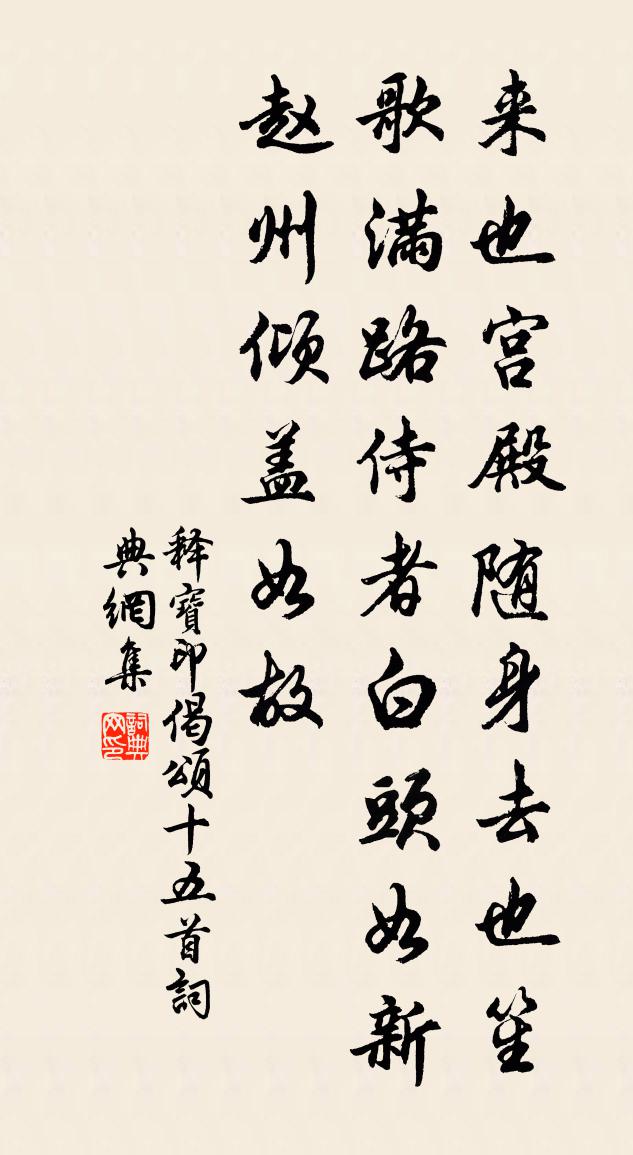 来也宫殿随身去也笙
歌满路侍者白頭如新
赵州倾盖如故
释寶印偈頌十五首詞
典網集
詞典网印